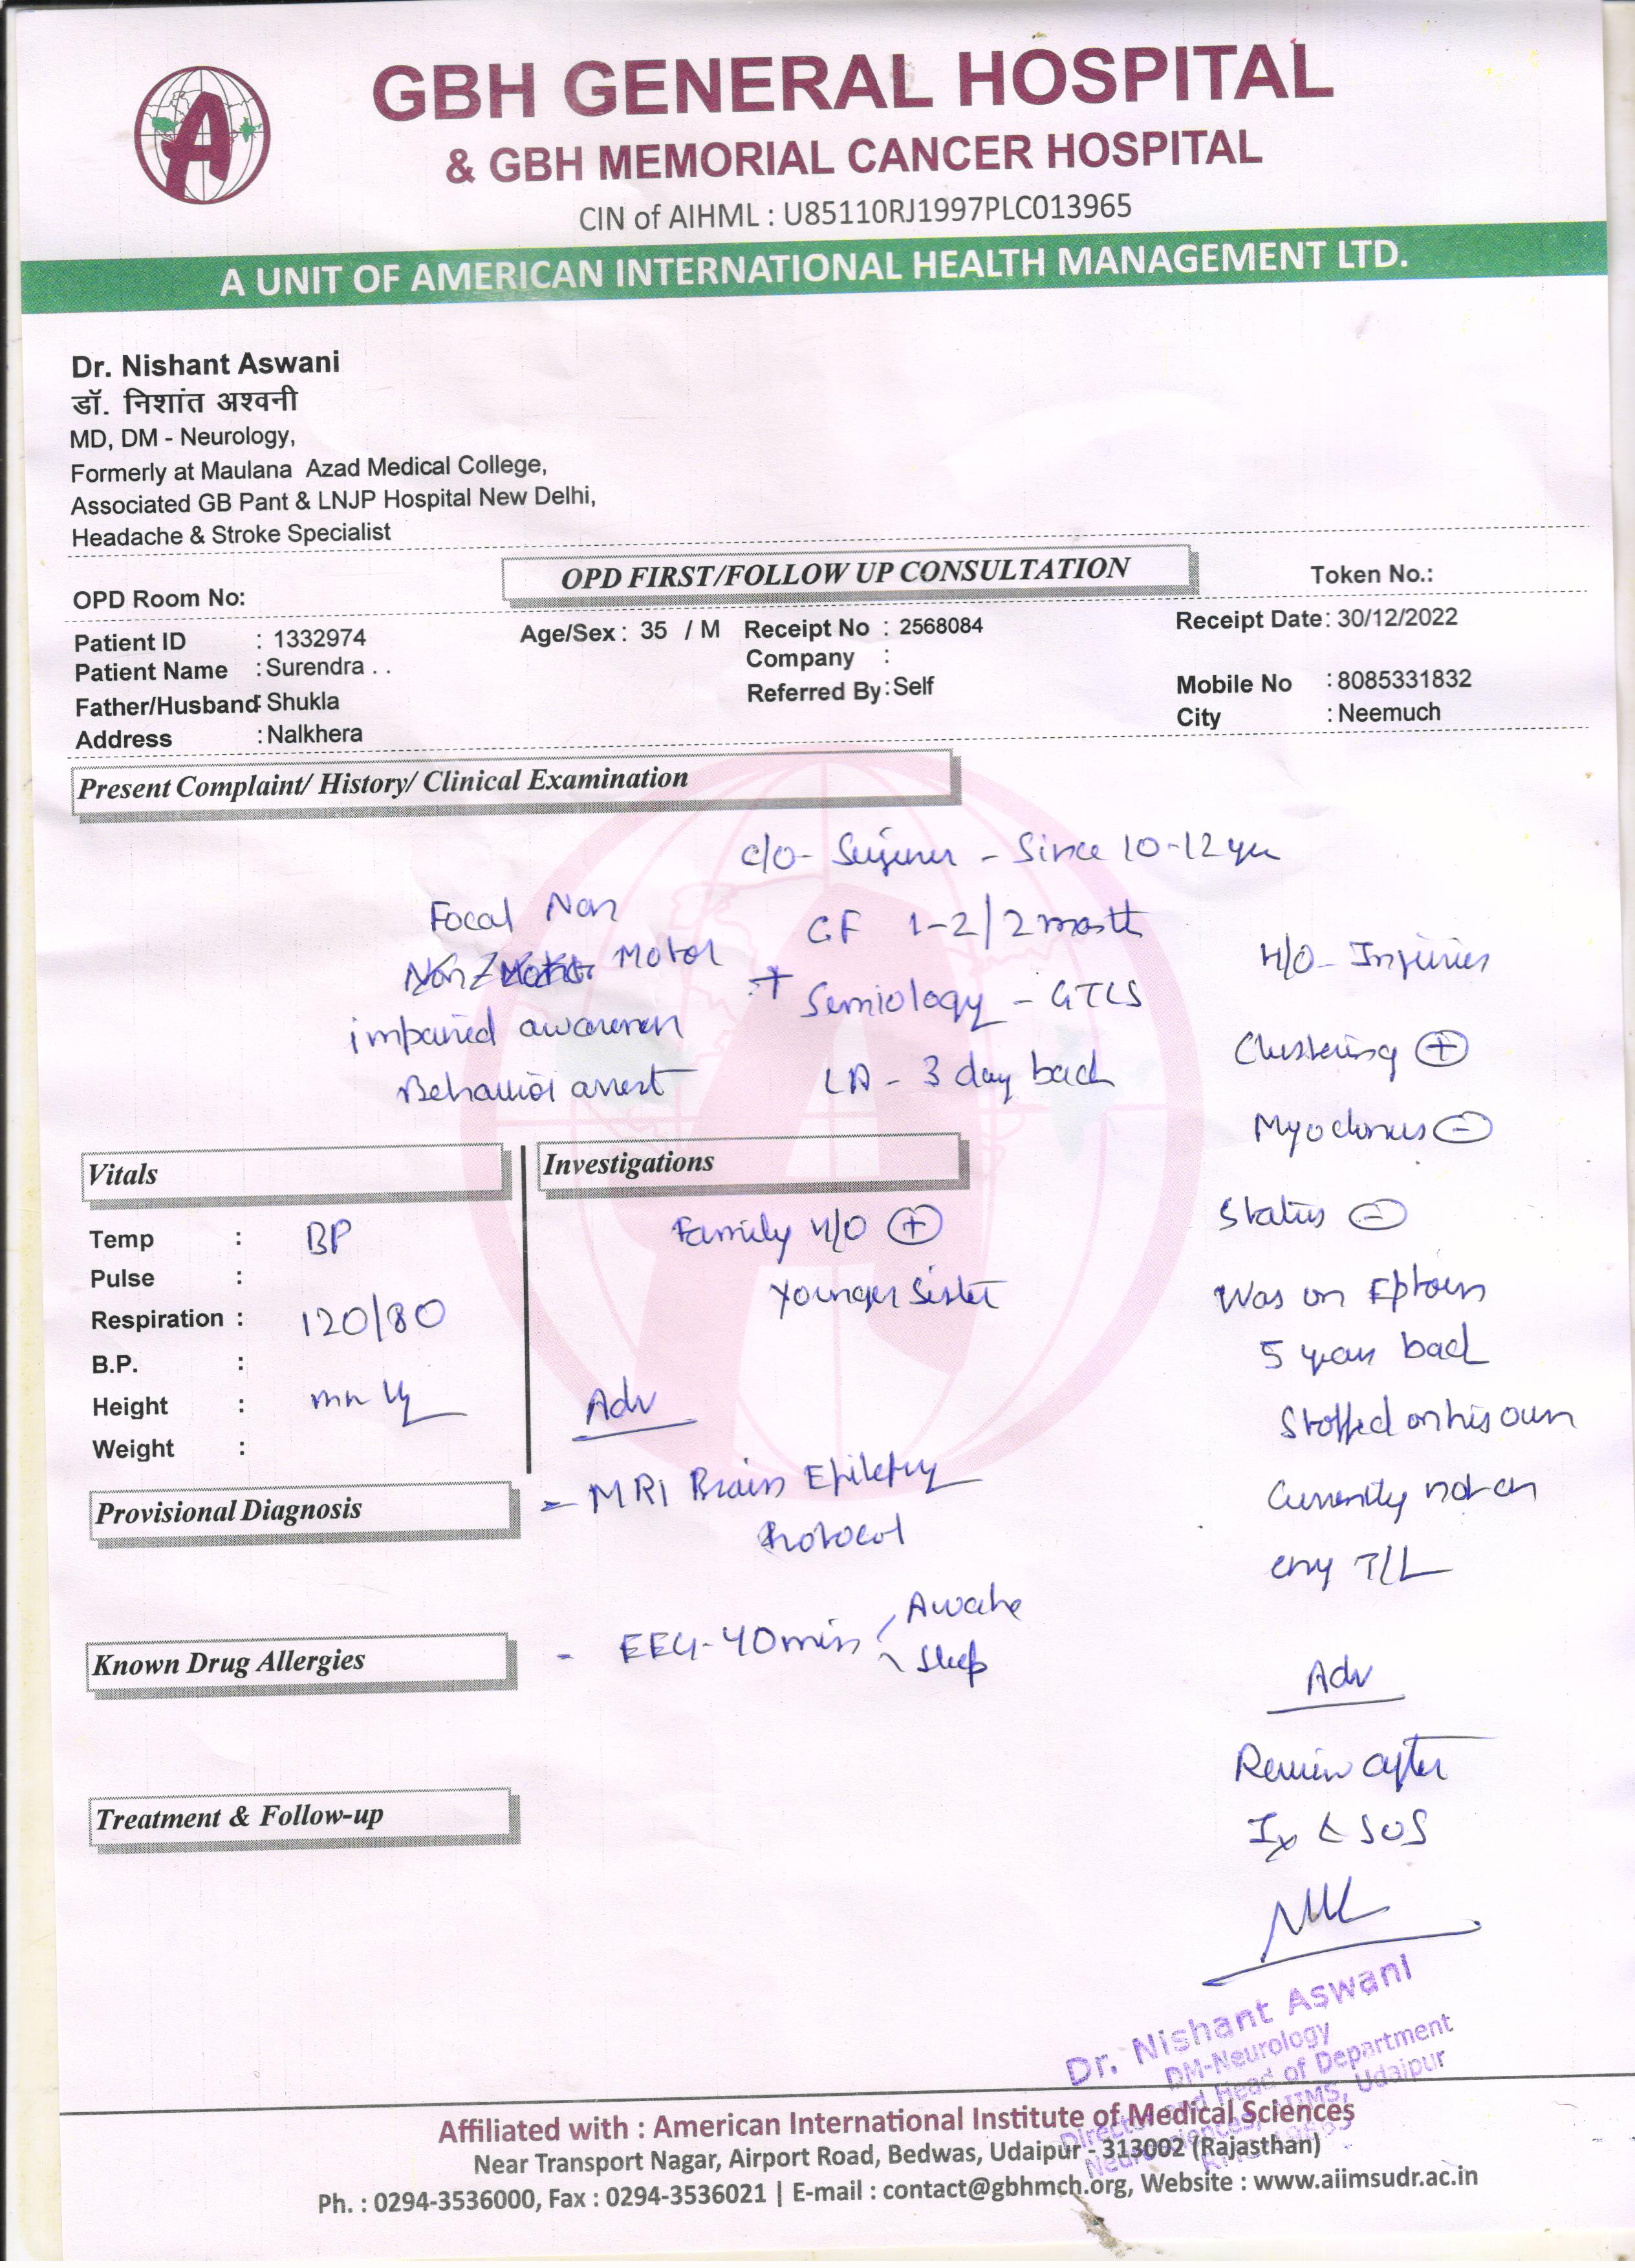 GBH GENERAL HOSPITAL
& GBH MEMORIAL CANCER HOSPITAL
CIN of AIHML : U85110RJ1997PLC013965
A UNIT OF AMERICAN INTERNATIONAL HEALTH MANAGEMENT LTD.
Dr. Nishant Aswani
डॉ. निशांत अश्वनी
MD, DM - Neurology,
Formerly at Maulana Azad Medical College,
Associated GB Pant & LNJP Hospital New Delhi,
Headache & Stroke Specialist
OPD Room No: OPD FIRST/FOLLOW UP CONSULTATION Token No.:
Patient ID : 1332974 Age/Sex : 35 / M Receipt No : 2568084 Receipt Date: 30/12/2022
Patient Name : Surendra . . Company :
Father/Husband : Shukla Referred By : Self Mobile No : 8085331832
Address : Nalkhera City : Neemuch
Present Complaint/ History/ Clinical Examination
c/o - Seizures - Since 10-12 yrs
Focal Non
Motor
impaired awareness
Behavior arrest
CF 1-2/2 month
+ Semiology - GTCS
LA - 3 day back
H/O - Injuries
Clustering +
Myoclonus -
Status -
Was on Eptoin
5 years back
Stopped on his own
Currently not on
any T/L
Vitals
Temp : BP
Pulse :
Respiration : 120/80
B.P. :
Height : mn Hg
Weight :
Investigations
Family H/O +
Younger Sister
Adv
- MRI Brain Epilepsy
Protocol
- EEG - 40 min Awake
Sleep
Provisional Diagnosis
Known Drug Allergies
Treatment & Follow-up
Adv
Review after
Ix & SOS
Dr. Nishant Aswani
DM-Neurology
Director and Head of Department
Neurosciences, AIIMS, Udaipur
Affiliated with : American International Institute of Medical Sciences
Near Transport Nagar, Airport Road, Bedwas, Udaipur - 313002 (Rajasthan)
Ph. : 0294-3536000, Fax : 0294-3536021 | E-mail : contact@gbhmch.org, Website : www.aiimsudr.ac.in